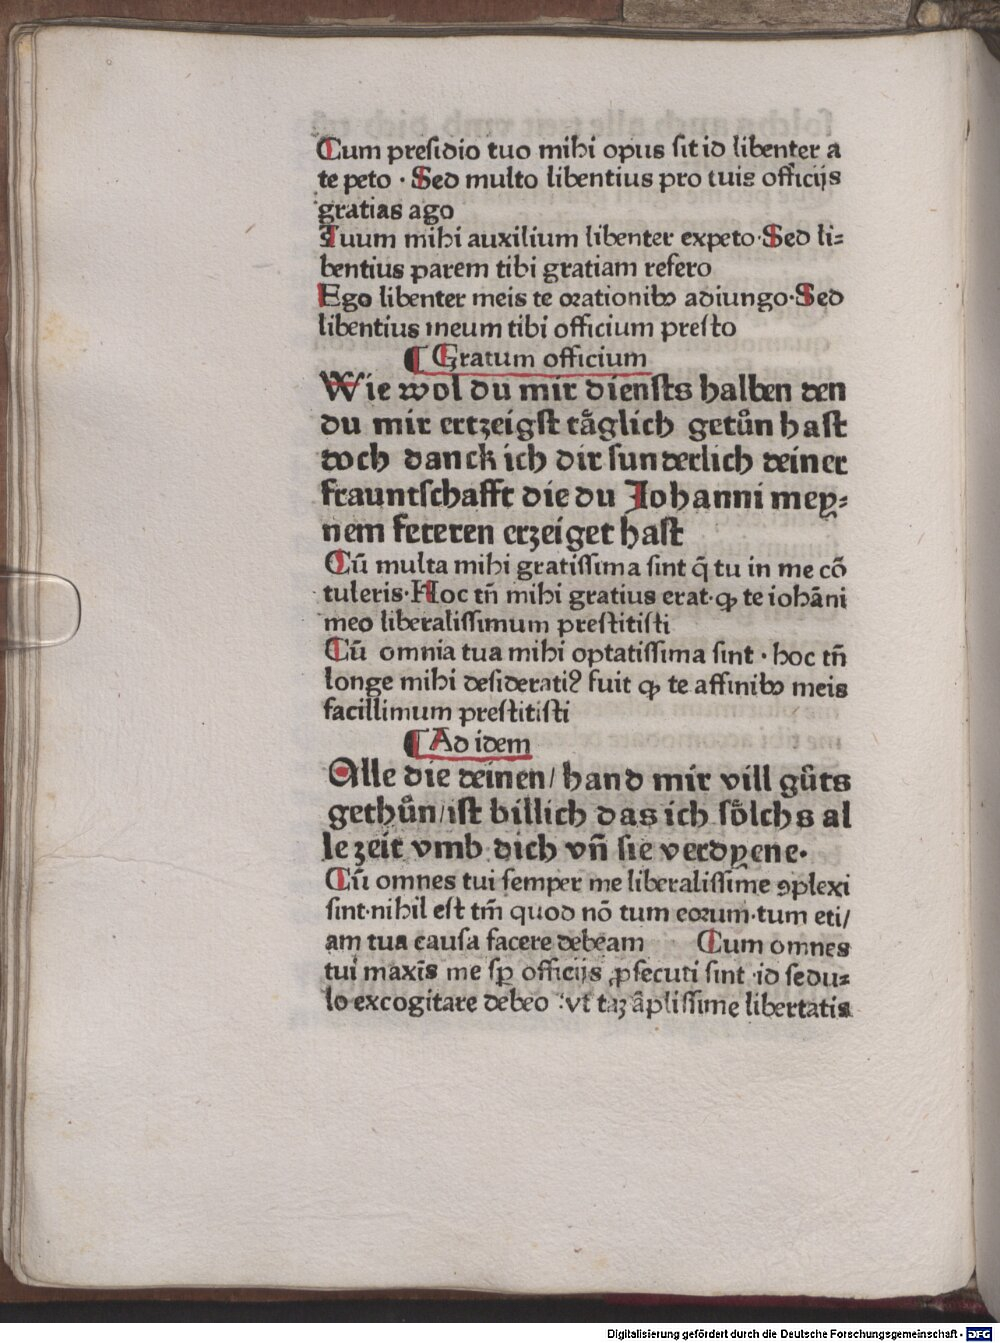 Cum presidio tuo mihi opus sit id libenter a
te peto · Sed multo libentius pro tuis officijs
gratias ago
Tuum mihi auxilium libenter expeto·Sed li=
bentius parem tibi gratiam refero
Ego libenter meis te orationibꝰ adiungo·Sed
libentius meum tibi officium presto
¶ Gratum officium
Wie wol du mir diensts halben den
du mir ertzeigst tåglich getůn hast
doch danck ich dir sunderlich deiner
frauntschafft die du Johanni mey=
nem feteren erzeiget hast
Cū multa mihi gratissima sint q̄ tu in me cō
tuleris·Hoc tn̄ mihi gratius erat·ꝙ te iohāni
meo liberalissimum prestitisti
Cū omnia tua mihi optatissima sint · hoc tn̄
longe mihi desideratiꝰ fuit ꝙ te affinibꝰ meis
facillimum prestitisti
¶ Ad idem
Alle die deinen/ hand mir vill gůts
gethůn/ist billich das ich sőlchs al
le zeit vmb dich vn̄ sie verdyene·
Cū omnes tui semper me liberalissime ꝯplexi
sint·nihil est tm̄ quod nō tum eorum·tum eti/
am tua causa facere debeam Cum omnes
tui maxīs me sꝑ officijs ꝓsecuti sint ·id sedu=
lo excogitare debeo :vt taꝫ āplissime libertatis
Digitalisierung gefördert durch die Deutsche Forschungsgemeinschaft - DFG